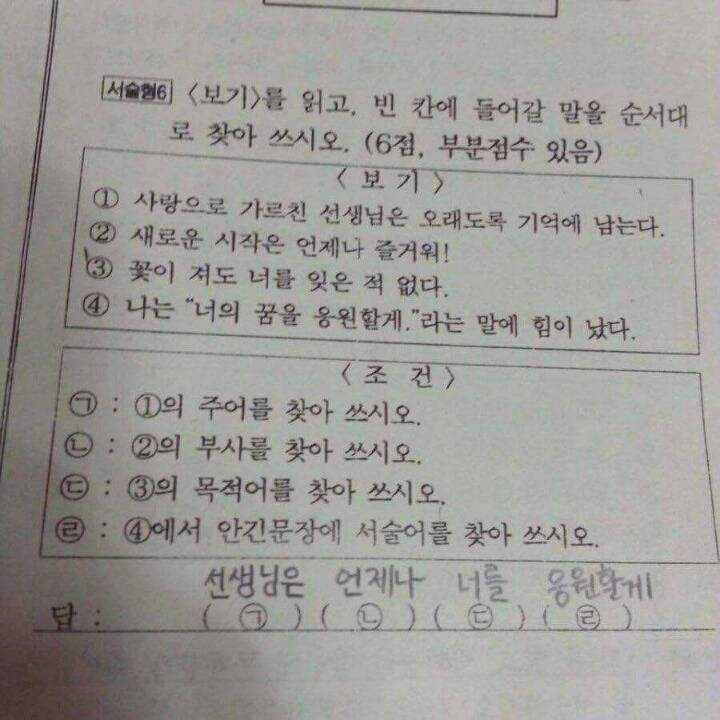 서술형6 <보기>를 읽고, 빈 칸에 들어갈 말을 순서대
로 찾아 쓰시오. (6점, 부분점수 있음)
< 보 기 >
① 사랑으로 가르친 선생님은 오래도록 기억에 남는다.
② 새로운 시작은 언제나 즐거워!
③ 꽃이 져도 너를 잊은 적 없다.
④ 나는 "너의 꿈을 응원할게."라는 말에 힘이 났다.
< 조 건 >
㉠ : ①의 주어를 찾아 쓰시오.
㉡ : ②의 부사를 찾아 쓰시오.
㉢ : ③의 목적어를 찾아 쓰시오.
㉣ : ④에서 안긴문장에 서술어를 찾아 쓰시오.
선생님은 언제나 너를 응원할게
답 : ( ㉠ ) ( ㉡ ) ( ㉢ ) ( ㉣ )